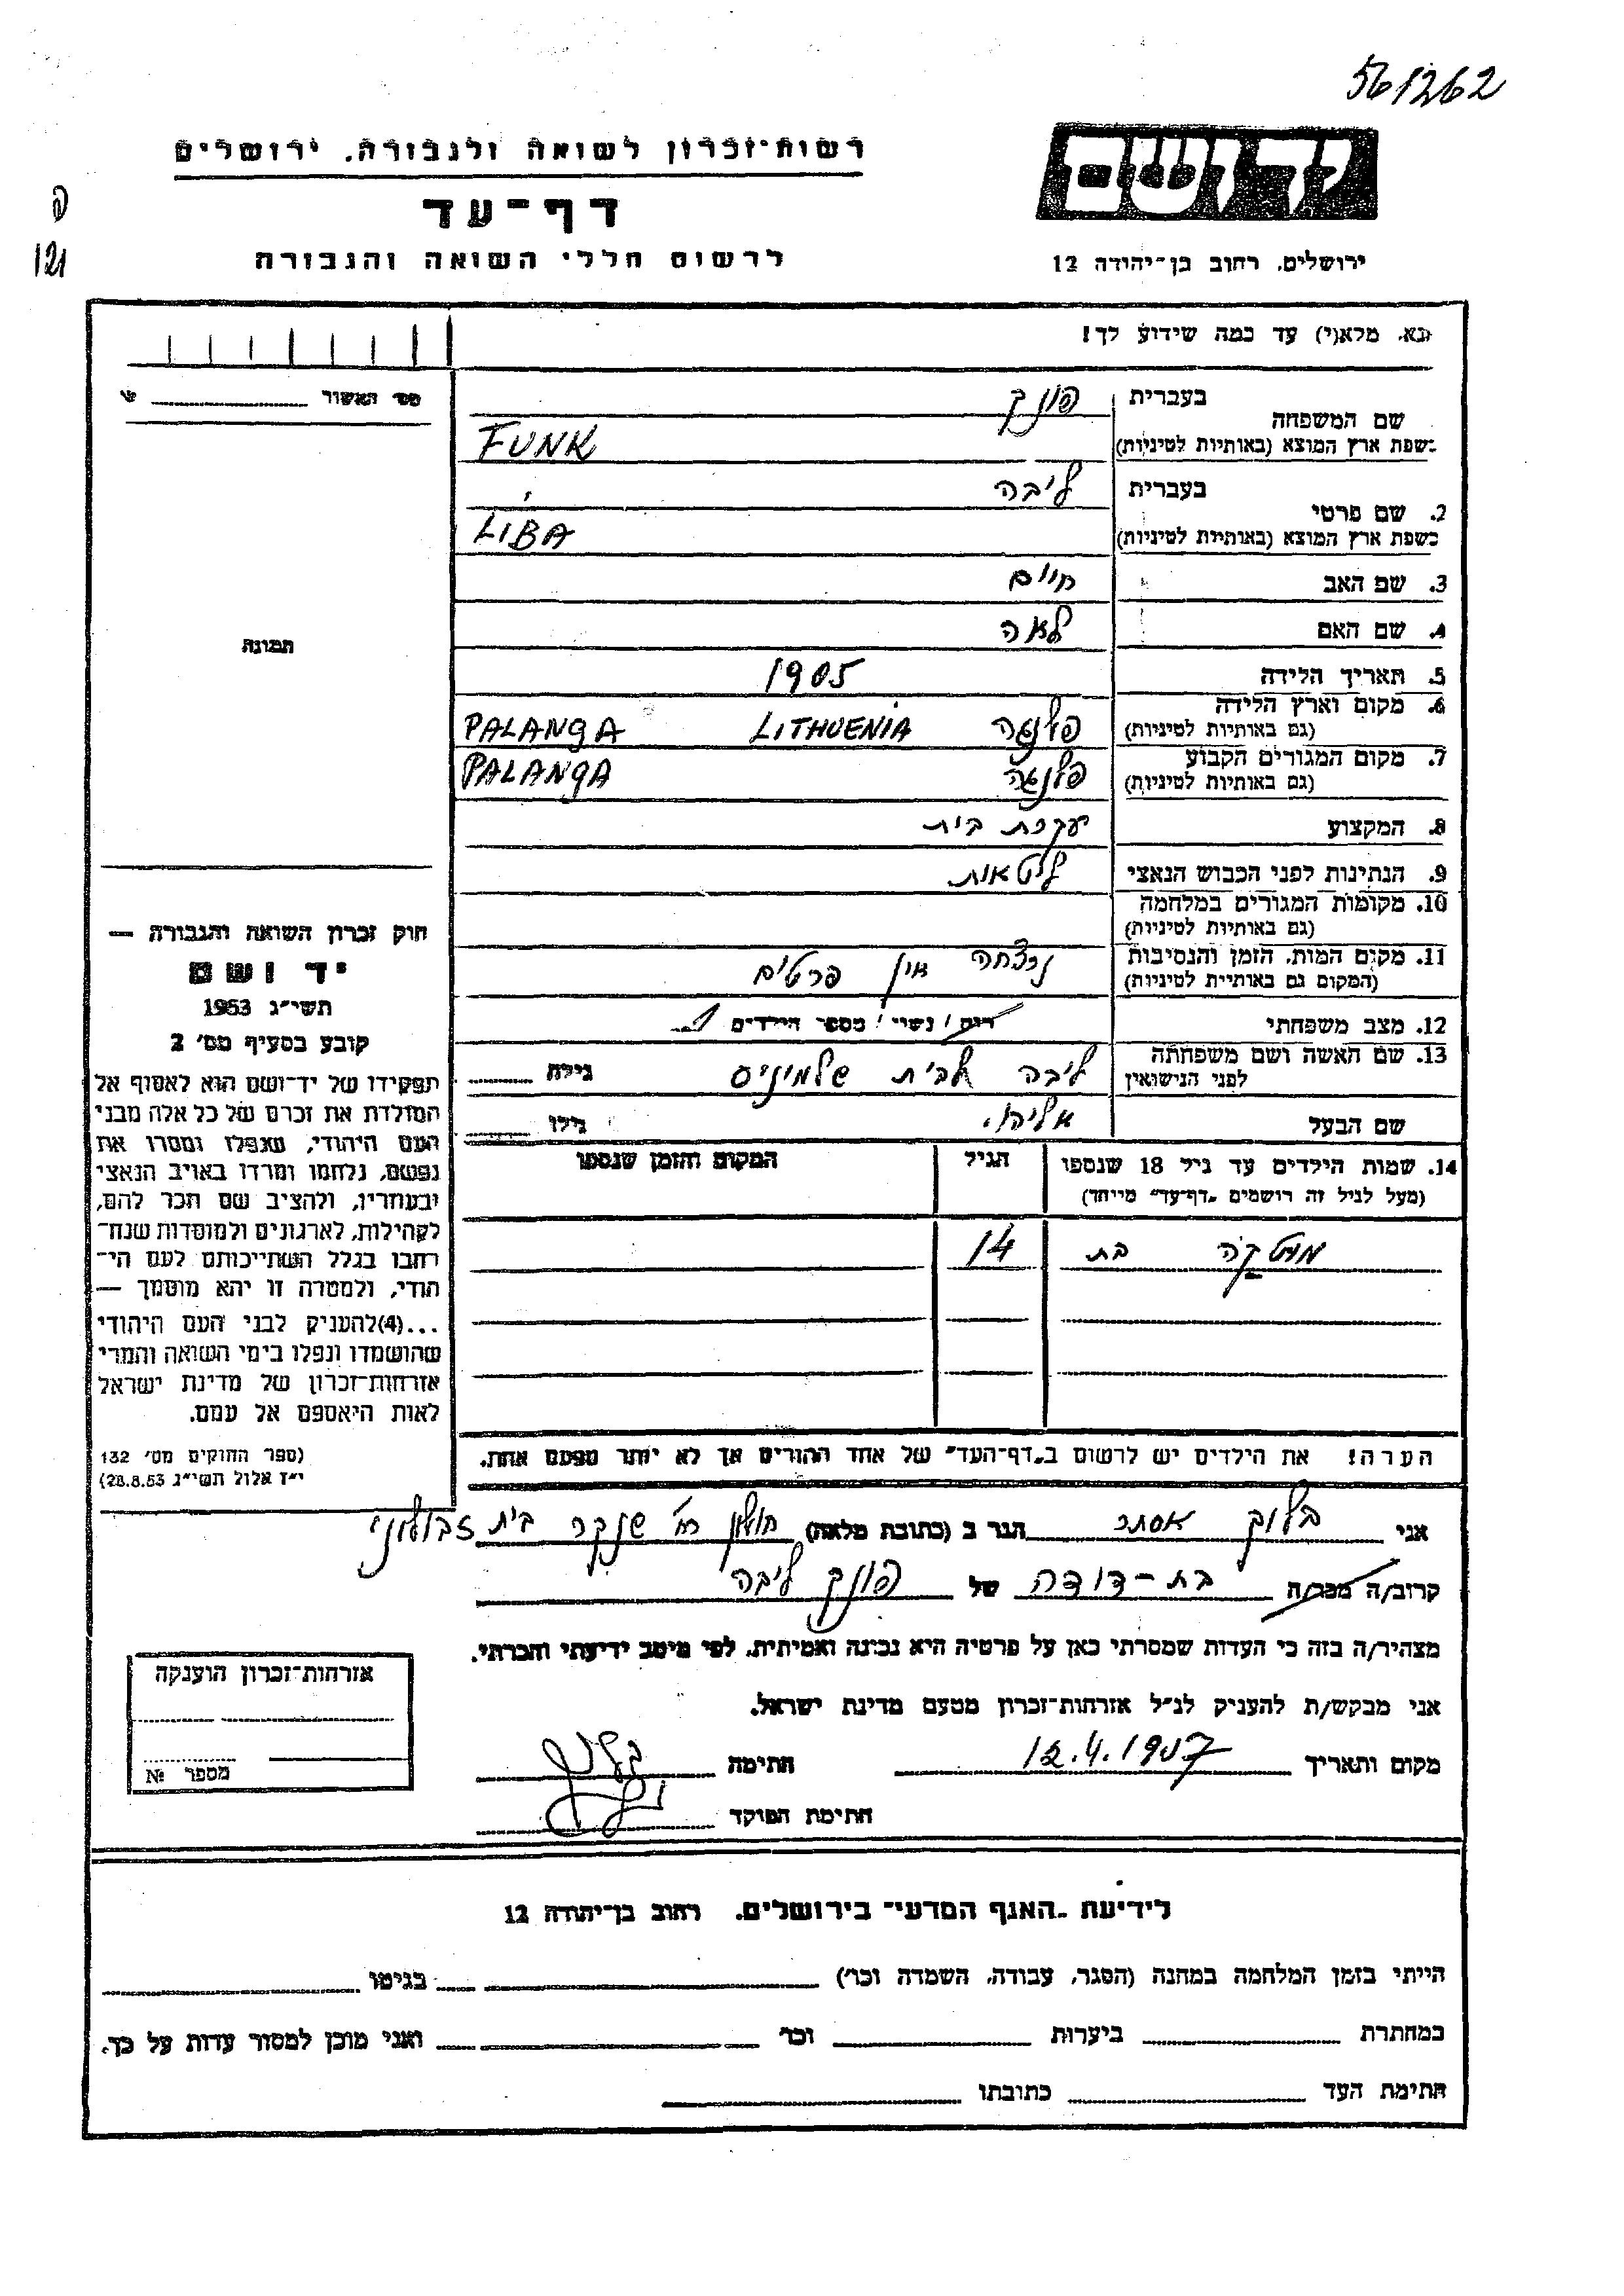 561262
רשות־זכרון לשואה ולגבורה. ירושלים
יד ושם
דף־עד
לרשום חללי השואה והגבורה
ירושלים, רחוב בן־יהודה 12
פ
121
נא. מלא(י) עד כמה שידוע לך!
מס׳ האשור
שם המשפחה
בעברית פונק
בשפת ארץ המוצא (באותיות לטיניות) FUNK
2. שם פרטי
בעברית ליבה
בשפת ארץ המוצא (באותיות לטיניות) LIBA
3. שם האב חיים
4. שם האם לאה
5. תאריך הלידה 1905
6. מקום וארץ הלידה
(גם באותיות לטיניות) פלנגה LITHUENIA PALANGA
7. מקום המגורים הקבוע
(גם באותיות לטיניות) פלנגה PALANGA
8. המקצוע עקרת בית
9. הנתינות לפני הכבוש הנאצי
10. מקומות המגורים במלחמה
(גם באותיות לטיניות)
11. מקום המות, הזמן והנסיבות
(המקום גם באותיות לטיניות) נרצחה אין פרטים
12. מצב משפחתי רווק / נשוי / מספר הילדים 1
13. שם האשה ושם משפחתה
לפני הנישואין ליבה לבית גילה
שם הבעל אליהו גילו
14. שמות הילדים עד גיל 18 שנספו
(מעל לגיל זה רושמים „דף־עד״ מייוחד)
הגיל
המקום והזמן שנספו
בת 14
הערה! את הילדים יש לרשום ב„דף־העד״ של אחד ההורים אך לא יותר מפעם אחת.
תמונה
חוק זכרון השואה והגבורה —
יד ושם
תשי״ג 1953
קובע בסעיף מס׳ 2
תפקידו של יד־ושם הוא לאסוף אל
המולדת את זכרם של כל אלה מבני
העם היהודי, שנפלו ומסרו את
נפשם, נלחמו ומרדו באויב הנאצי
ובעוזריו, ולהציב שם וזכר להם,
לקהילות, לארגונים ולמוסדות שנח־
רבו בגלל השתייכותם לעם הי־
הודי, ולמטרה זו יהא מוסמך —
...(4)להעניק לבני העם היהודי
שהושמדו ונפלו בימי השואה והמרי
אזרחות־זכרון של מדינת ישראל
לאות היאספם אל עמם.
(ספר החוקים מס׳ 132
י״ז אלול תשי״ג 28.8.53)
אני בלוך אסתר הגר ב (כתובת מלאה) חולון רח׳ שנקר בית
קרוב/ה מכר/ה בת-דודה של פונק ליבה
מצהיר/ה בזה כי העדות שמסרתי כאן על פרטיה היא נכונה ואמיתית, לפי מיטב ידיעתי והכרתי.
אני מבקש/ת להעניק לנ״ל אזרחות־זכרון מטעם מדינת ישראל.
מקום ותאריך חתימה
חתימת הפוקד
אזרחות־זכרון הוענקה
מספר №
לידיעת „האגף המדעי״ בירושלים. רחוב בן־יהודה 12
הייתי בזמן המלחמה במחנה (הסגר, עבודה, השמדה וכו׳) בגיטו
במחתרת ביערות וכו׳ ואני מוכן למסור עדות על כך.
חתימת העד כתובתו